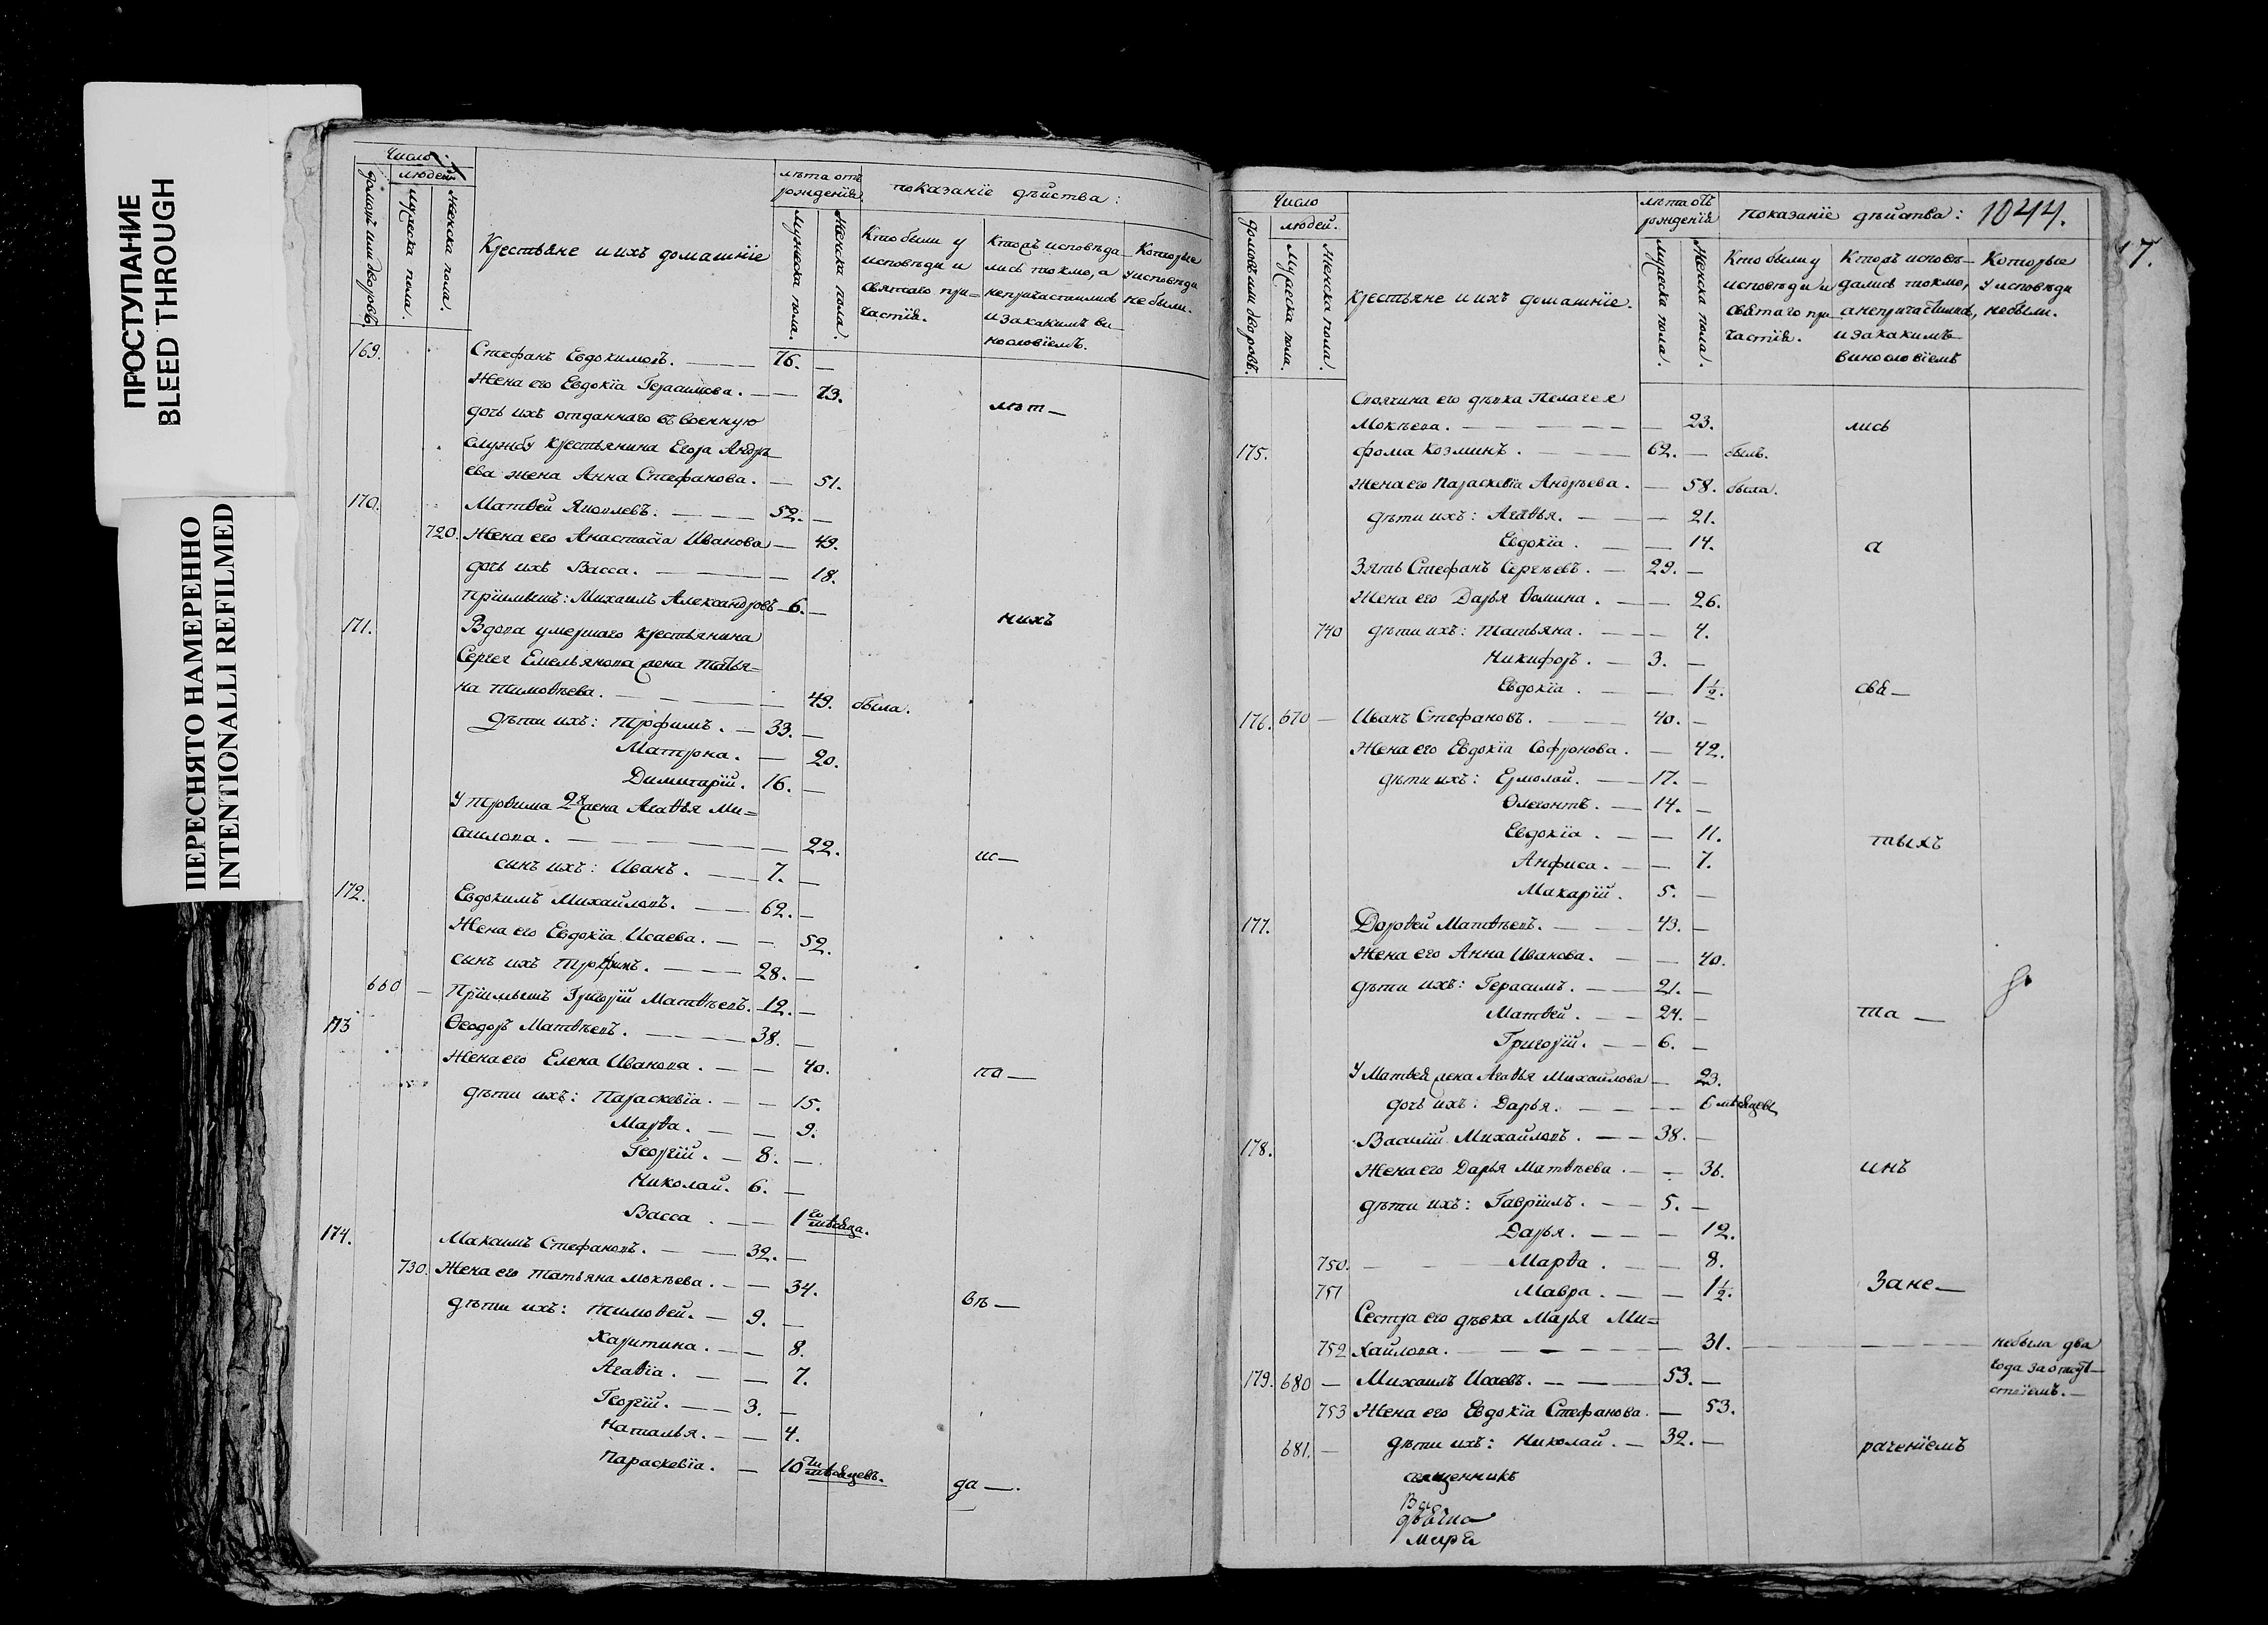 ПРОСТУПАНИЕ
BLEED THROUGH
ПЕРЕСНЯТО НАМЕРЕННО
INTENTIONALLI REFILMED
Число
людей
домовъ или дворовъ.
мужеска пола.
женска пола.
Крестьяне и ихъ домашнїе
лѣта отъ рожденїя.
мужеска пола.
женска пола.
показанїе дѣйства:
Кто были у исповѣди и святаго при=частїя.
Кто исповѣда лись токмо, а непричастились и закакимъ ви нословїемъ.
Которые у исповѣди не были.
169. Стефанъ Евдокимовъ. 76. —
Жена его Евдокїа Герасимова. — 73.
лѣт —
дочь ихъ отданнаго въ военную
службу крестьянина Егора Андрѣ
ева жена Анна Стефанова. — 51.
170. Матѳей Яковлевъ. 52. —
720. Жена его Анастасїа Иванова — 49.
дочь ихъ Васса. — 18.
прїимышъ: Михаилъ Александровъ 6. —
нихъ
171. Вдова умершаго крестьянина
Сергея Емельянова жена Татья=
на Тимоѳѣева. 49. была.
дѣти ихъ: Трофимъ. — 33. —
Матрона. — 20.
Димитарїй. 16. —
У Трофима 2я жена Агаѳья Ми=
саилова. — 22.
ис —
сынъ ихъ: Иванъ. — 7. —
172. Евдокимъ Михайловъ. — 62. —
Жена его Евдокїа Исаева. — 52.
сынъ ихъ Трофимъ. — 28. —
660 — Прїимышъ Григорїй Матѳѣевъ. 12. —
173 Ѳеодоръ Матѳѣевъ. — 38. —
Жена его Елена Иванова. — 40.
по —
дѣти ихъ: Параскевїа. — 15.
Марѳа. — 9.
Георгїй. — 8. —
Николай. 6. —
Васса. — 1го мѣсяца.
174. Максимъ Стефановъ. — 32. —
730. Жена его Татьяна Мокѣева. — 34.
вѣ —
дѣти ихъ: Тимоѳей. — 9. —
Харитина. — 8.
Агаѳїа. — 7.
Георгїй. — 3. —
Наталья. — 4.
Параскевїа. — 10ти мѣсяцевъ.
да —.
Число
людей.
домовъ или дворовъ.
мужеска пола.
женска пола.
крестьяне и ихъ домашнїе.
лѣта отъ рожденїя
мужеска пола.
женска пола.
показанїе дѣйства:
1044.
17.
Кто были у исповѣди и святаго при частїя.
Кто исповѣ— дались токмо, анепричастились, и закакимъ винословїемъ
Которые у исповѣди небыли.
Своячина его дѣвка Пелагея
Мокѣева. — 23. лись
175. Фома Козминъ. — 62. — былъ.
Жена его Параскевїа Андрѣева. — 58. была.
дѣти ихъ: Агаѳья. — 21.
Евдокїа. — 14.
а
Зять Стефанъ Сергѣевъ. — 29. —
Жена его Дарья Ѳомина. — 26.
740 дѣти ихъ: Татьяна. — 4.
Никифоръ. — 3. —
Евдокїа. — 1½. свя —
176. 670 — Иванъ Стефановъ. — 40. —
Жена его Евдокїа Софронова. — 42.
дѣти ихъ: Ермолай. — 17. —
Ѳлегонтъ. — 14. —
Евдокїа. — 11.
тыхъ
Анфиса. — 7.
Макарїй. 5. —
177. Дороѳей Матѳѣевъ. — 43. —
Жена его Анна Иванова. — 40.
дѣти ихъ: Герасимъ. — 21. —
Матѳей. — 24. — та —
Григорїй. — 6. —
У Матѳея жена Агаѳья Михайлова — 23.
дочь ихъ: Дарья. — 6 мѣсяцевъ
178. Василїй Михайловъ. — 38. —
Жена его Дарья Матѳѣева. — 36. инъ
дѣти ихъ: Гаврїилъ. — 5. —
Дарья. — 12.
750. Марѳа. — 8.
751 Мавра. — 1½. Зане —
Сестра его дѣвка Марья Ми=
752 хайлова. — 31. — небыла два
года за отсут
ствїемъ. —
179. 680 — Михаилъ Исаевъ. — 53. —
753 Жена его Евдокїа Стефанова. — 53.
681. — дѣти ихъ: Николай. — 32. — раченїемъ
священникъ